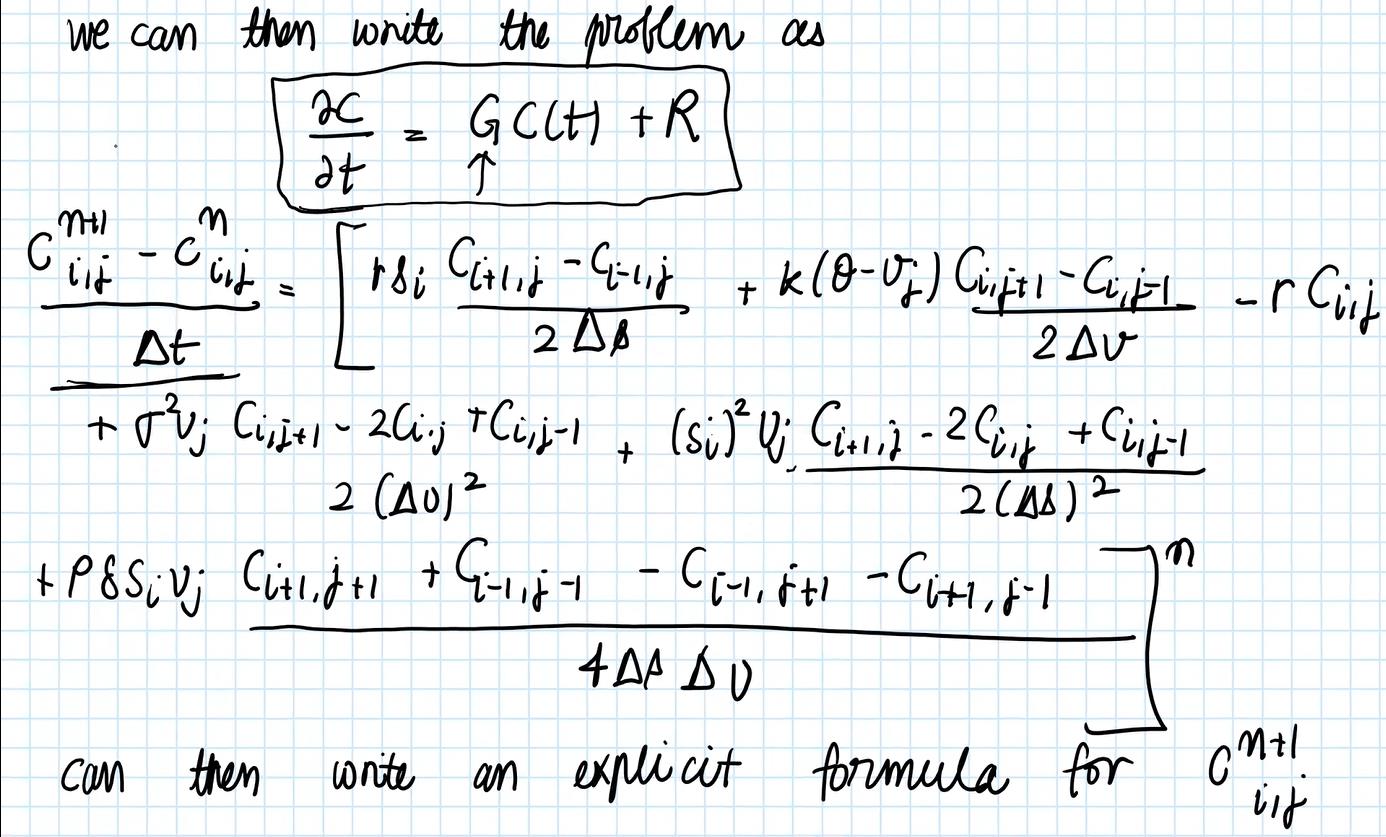 we can then write the problem as
∂C/∂t = G C(t) + R
↑
(C^{n+1}_{i,j} - C^n_{i,j})/Δt = [ r s_i (C_{i+1,j} - C_{i-1,j})/(2Δs) + k(θ-v_j) (C_{i,j+1} - C_{i,j-1})/(2Δv) - r C_{i,j}
+ σ²v_j (C_{i,j+1} - 2C_{i,j} + C_{i,j-1})/(2(Δv)²) + (s_i)² v_j (C_{i+1,j} - 2C_{i,j} + C_{i,j-1})/(2(Δs)²)
+ ρ δ s_i v_j (C_{i+1,j+1} + C_{i-1,j-1} - C_{i-1,j+1} - C_{i+1,j-1})/(4Δs Δv) ]^n
can then write an explicit formula for C^{n+1}_{i,j}